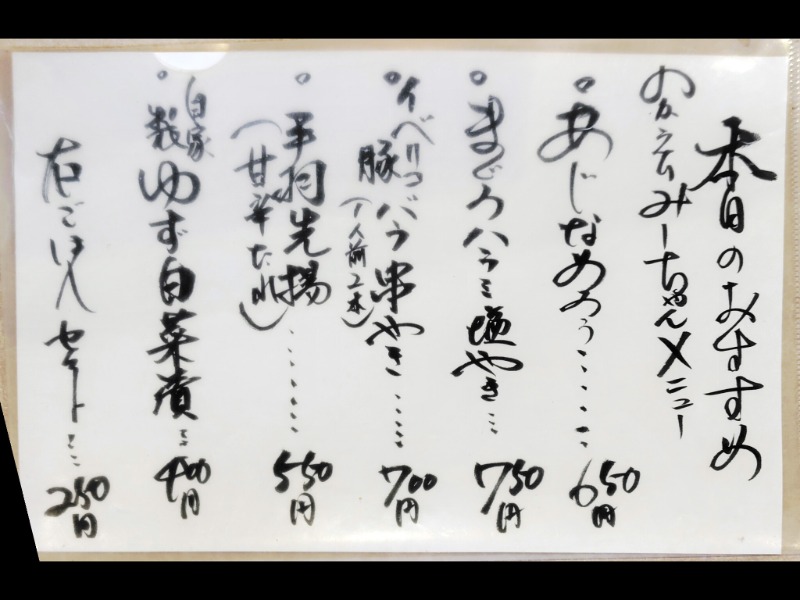 本日のおすすめ
みーちゃんメニュー
○あじなめろう……… 650円
○まぐろハラミ塩やき… 750円
○イベリコ豚バラ串やき…… 700円
(1人前2本)
○手羽先揚……… 550円
(甘辛たれ)
○自家製ゆず白菜漬… 400円
右ごはんセット… 250円